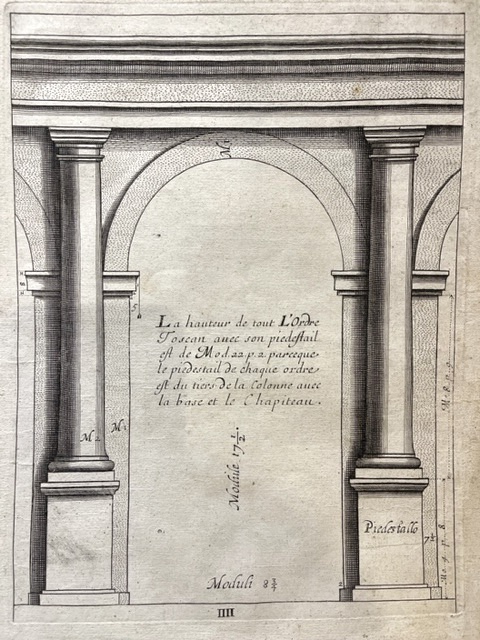 La hauteur de tout L'Ordre
Toscan avec son piedestail
est de Mod. 22 p. 2 parceque
le piedestail de chaque ordre
est du tiers de la Colonne avec
la base et le Chapiteau.
M 2
M 1
Module 17 1/2
Piedestallo
Moduli 8 3/4
IIII